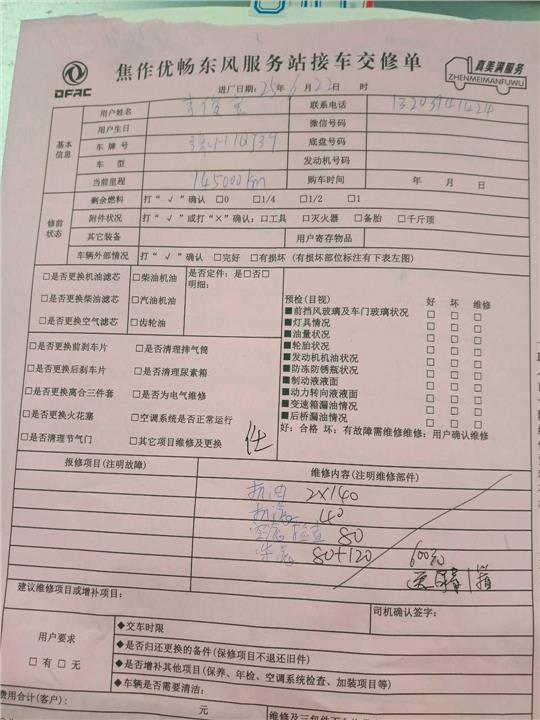 DFAC
焦作优畅东风服务站接车交修单
真美满服务
ZHENMEIMANFUWU
进厂日期:25年6月22日 时
基本信息
用户姓名 联系电话
用户生日 微信号码
车牌号 底盘号码
车型 发动机号码
当前里程 145000km 购车时间 年 月 日
修前状态
剩余燃料 打“√”确认 □0 □1/4 □1/2 □1
附件状况 打“√”或打“×”确认:□工具 □灭火器 □备胎 □千斤顶
其它装备 用户寄存物品
车辆外部情况 打“√”确认 □完好 □有损坏 (有损坏部位标注有下表左图)
□是否更换机油滤芯 □柴油机油 是否定件:是□否□
明细:
□是否更换柴油滤芯 □汽油机油
□是否更换空气滤芯 □齿轮油
预检(目视) 好 坏 维修
■前挡风玻璃及车门玻璃状况 □ □ □
■灯具情况 □ □ □
■油量状况 □ □ □
■轮胎状况 □ □ □
■发动机机油状况 □ □ □
■防冻防锈瓶状况 □ □ □
■制动液液面 □ □ □
■动力转向液液面 □ □ □
■变速箱漏油情况 □ □ □
■后桥漏油情况 □ □ □
好:合格 坏:有故障需维修维修:用户确认维修
□是否更换前刹车片 □是否清理排气筒
□是否更换后刹车片 □是否清理尿素箱
□是否更换离合三件套 □是否为电气维修
□是否更换火花塞 □空调系统是否正常运行
□是否清理节气门 □其它项目维修及更换
报修项目(注明故障) 维修内容(注明维修部件)
机油 2×140
机滤 40
80
柴滤 80+120 600元
送 1箱
建议维修项目或增补项目:
司机确认签字:
用户要求
□有 □无
◆交车时限
◆是否归还更换的备件(保修项目不退还旧件)
◆是否增补其他项目(保养、年检、空调系统检查、加装项目等)
◆车辆是否需要清洁:
费用合计(客户): 元